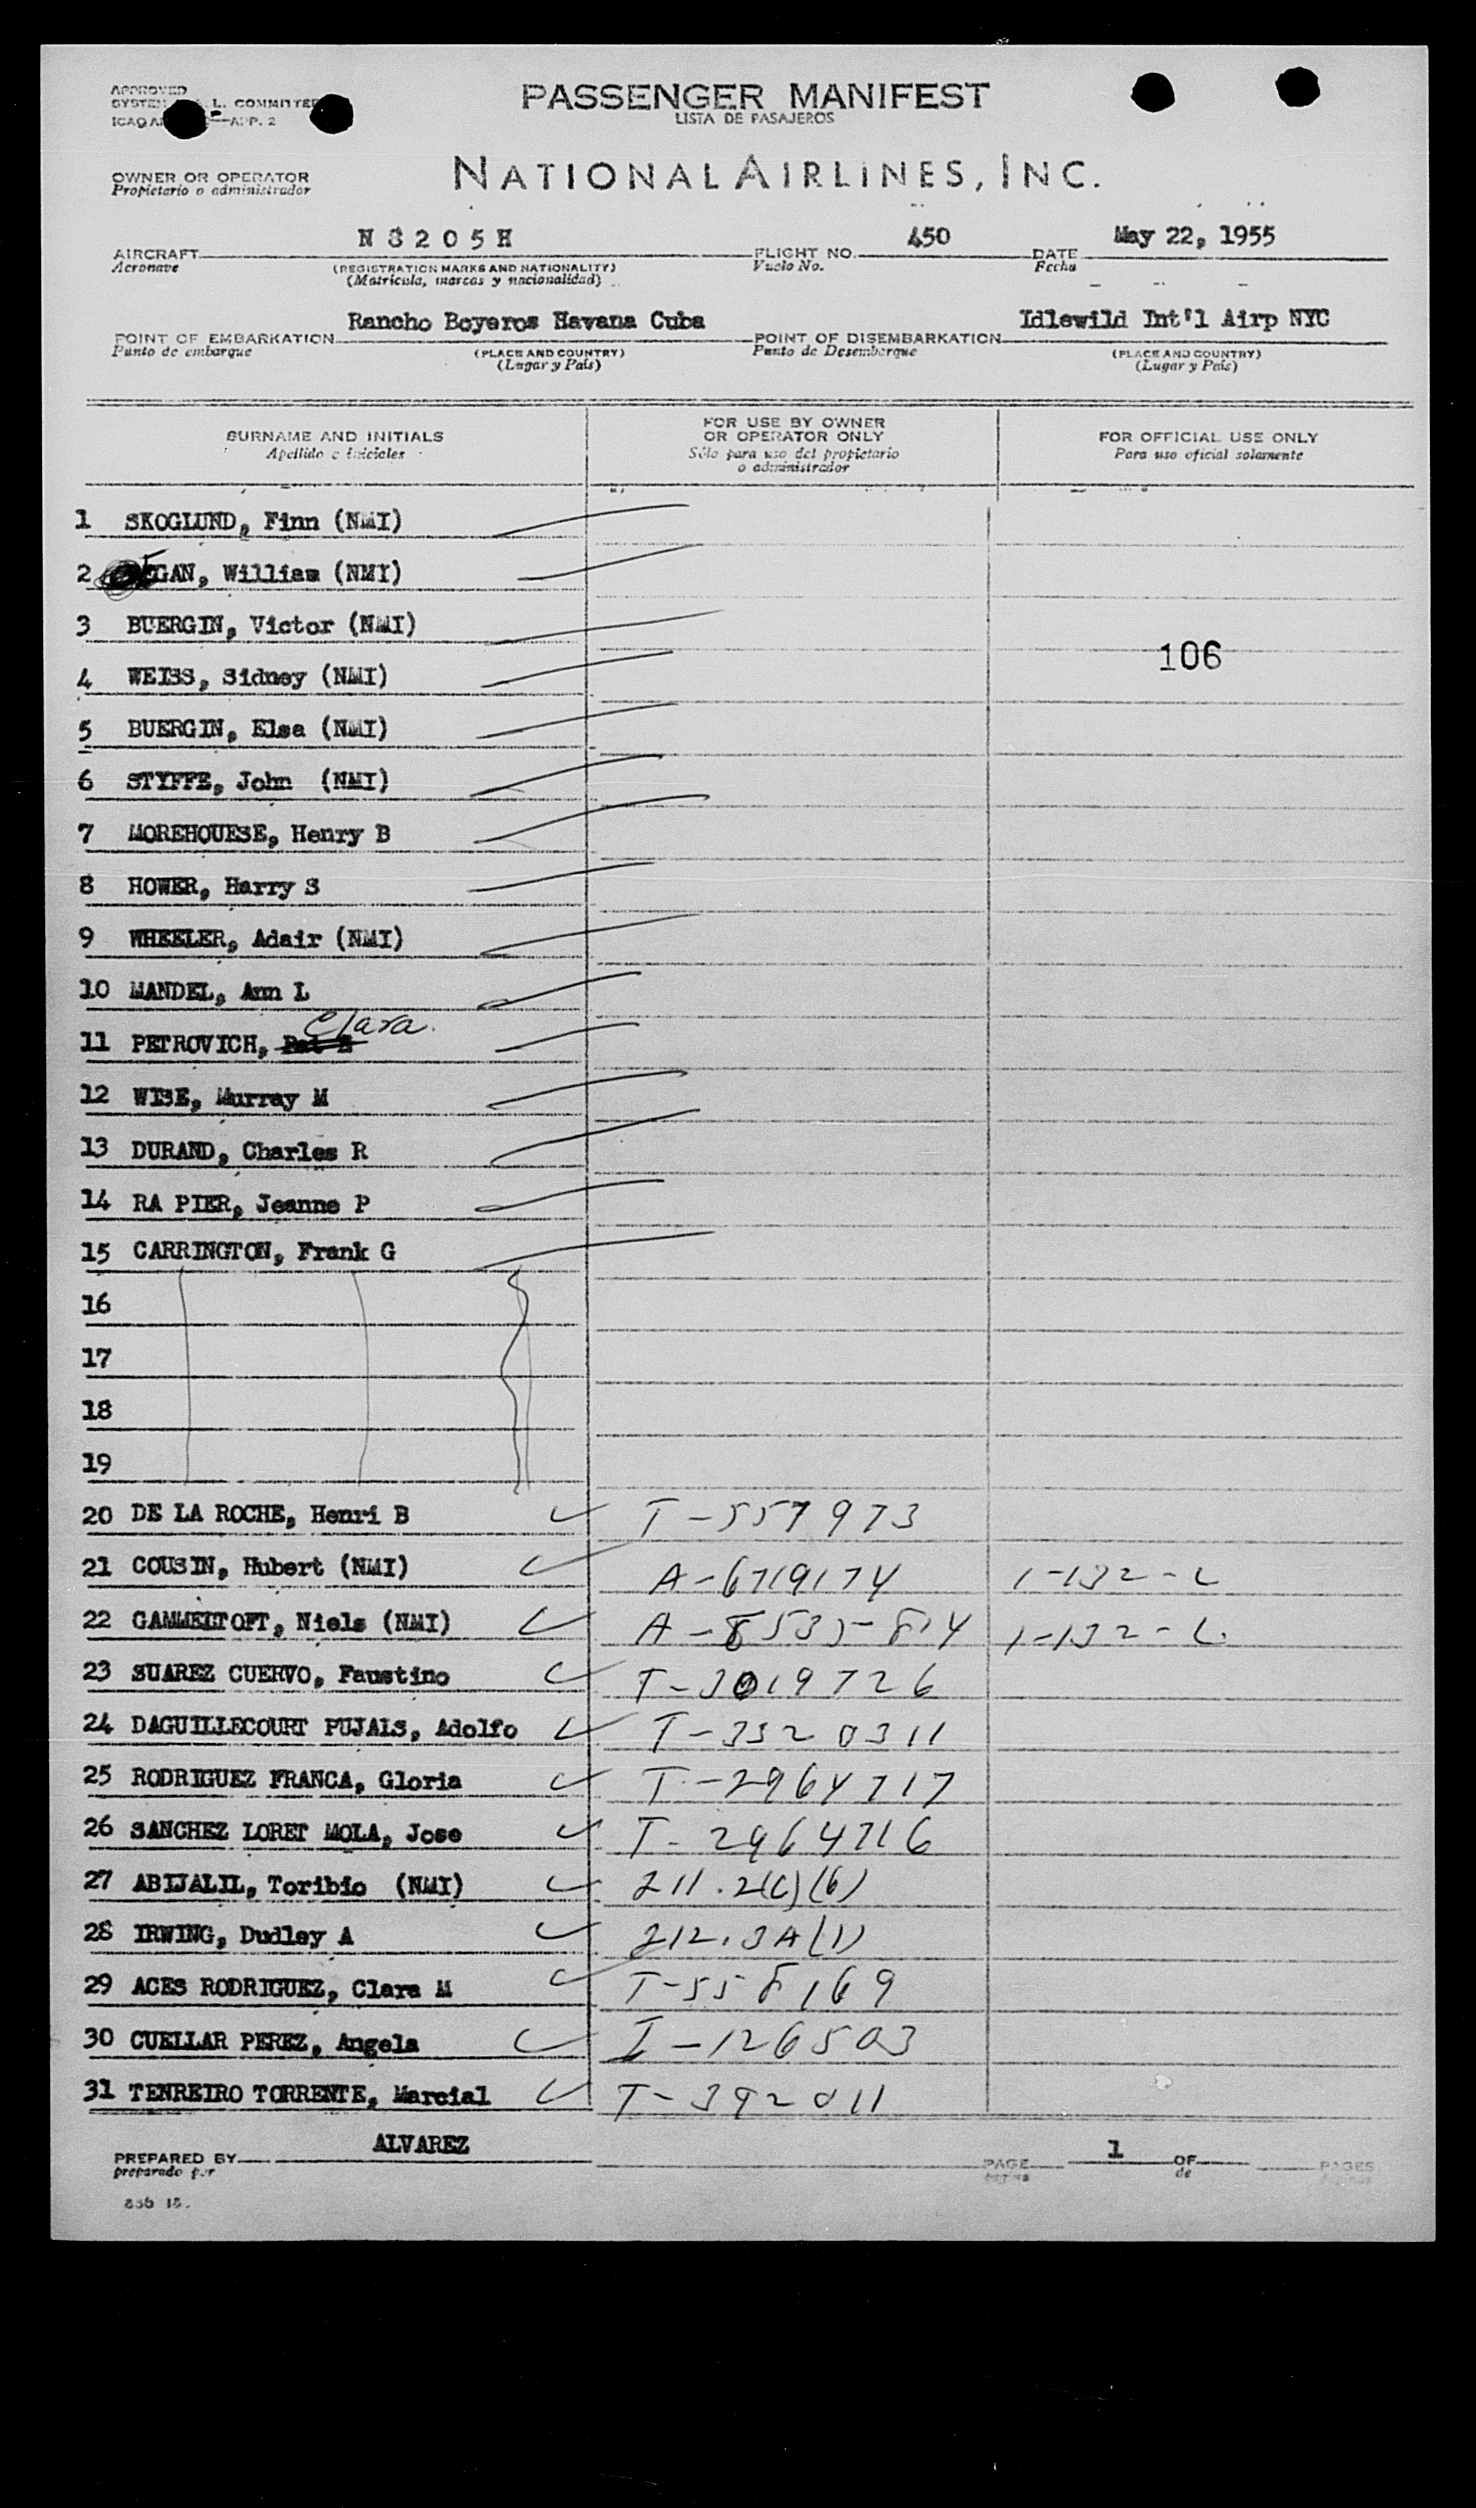 APPROVED
PASSENGER MANIFEST
LISTA DE PASAJEROS
L. COMMITTEE
APP. 2
OWNER OR OPERATOR
Propietario o administrador
NATIONAL AIRLINES, INC.
AIRCRAFT N 8 2 0 5 H FLIGHT NO. 450 DATE May 22, 1955
Aeronave (REGISTRATION MARKS AND NATIONALITY) Vuelo No. Fecha
(Matricula, marcas y nacionalidad)
POINT OF EMBARKATION Rancho Boyeros Havana Cuba POINT OF DISEMBARKATION Idlewild Int'l Airp NYC
Punto de embarque (PLACE AND COUNTRY) Punto de Desembarque (PLACE AND COUNTRY)
(Lugar y País) (Lugar y País)
SURNAME AND INITIALS FOR USE BY OWNER OR OPERATOR ONLY FOR OFFICIAL USE ONLY
Apellido e iniciales Sólo para uso del propietario o administrador Para uso oficial solamente
1 SKOGLUND, Finn (NMI)
2 EGAN, William (NMI)
3 BUERGIN, Victor (NMI)
106
4 WEISS, Sidney (NMI)
5 BUERGIN, Elsa (NMI)
6 STYFFE, John (NMI)
7 MOREHOUESE, Henry B
8 HOWER, Harry S
9 WHEELER, Adair (NMI)
10 MANDEL, Ann L
11 PETROVICH, Clara.
12 WISE, Murray M
13 DURAND, Charles R
14 RA PIER, Jeanne P
15 CARRINGTON, Frank G
16
17
18
19
20 DE LA ROCHE, Henri B T-557973
21 COUSIN, Hubert (NMI) A-6719174 1-132-L
22 GAMMELTOFT, Niels (NMI) A-8535-814 1-132-L.
23 SUAREZ CUERVO, Faustino T-3019726
24 DAGUILLECOURT PUJALS, Adolfo T-3520311
25 RODRIGUEZ FRANCA, Gloria T-2964717
26 SANCHEZ LORET MOLA, Jose T-2964716
27 ABIJALIL, Toribio (NMI) 211.2(C)(6)
28 IRWING, Dudley A 212.3A(1)
29 ACES RODRIGUEZ, Clara M T-558169
30 CUELLAR PEREZ, Angela I-126503
31 TENREIRO TORRENTE, Marcial T-392011
PREPARED BY ALVAREZ PAGE 1 OF PAGES
preparado por página de